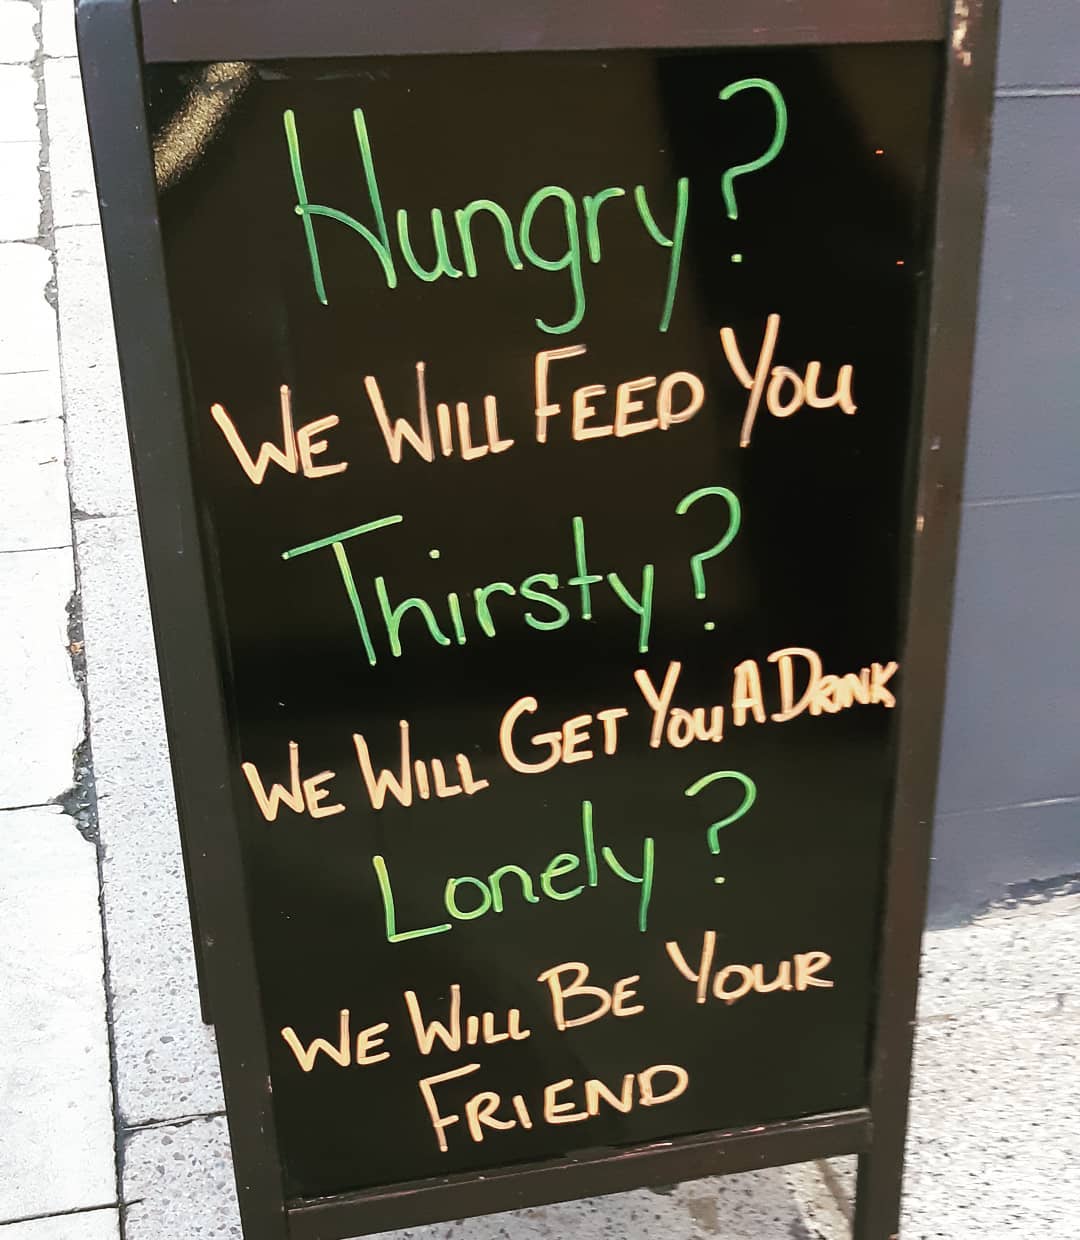 Hungry?
WE WILL FEED YOU
Thirsty?
WE WILL GET YOU A DRINK
Lonely?
WE WILL BE YOUR
FRIEND